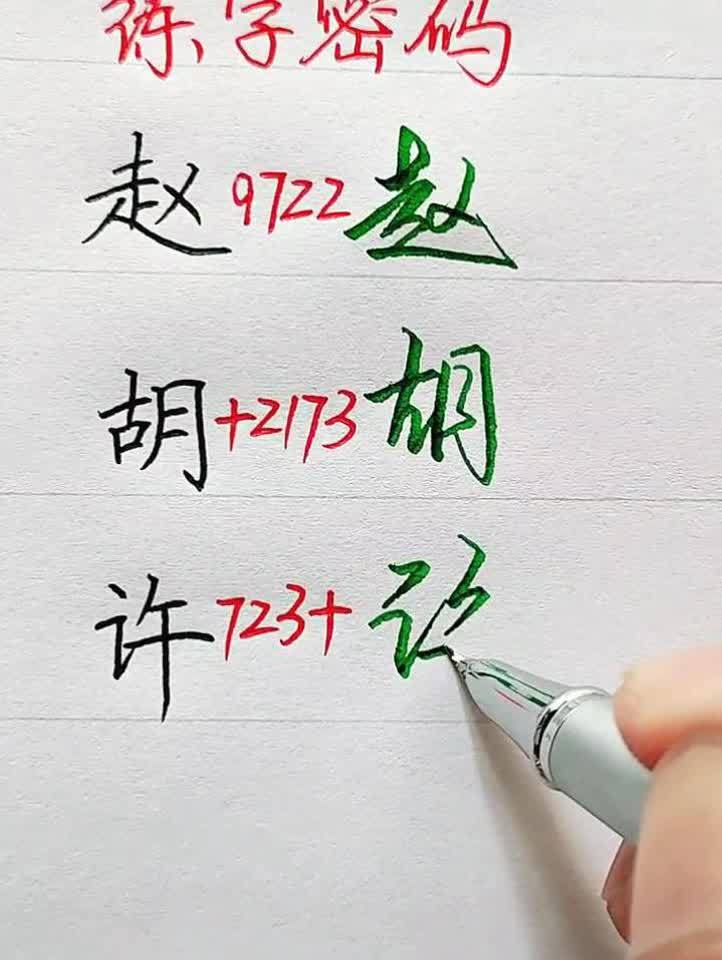 练字密码
赵 9722 赵
胡 +2173 胡
许 723+